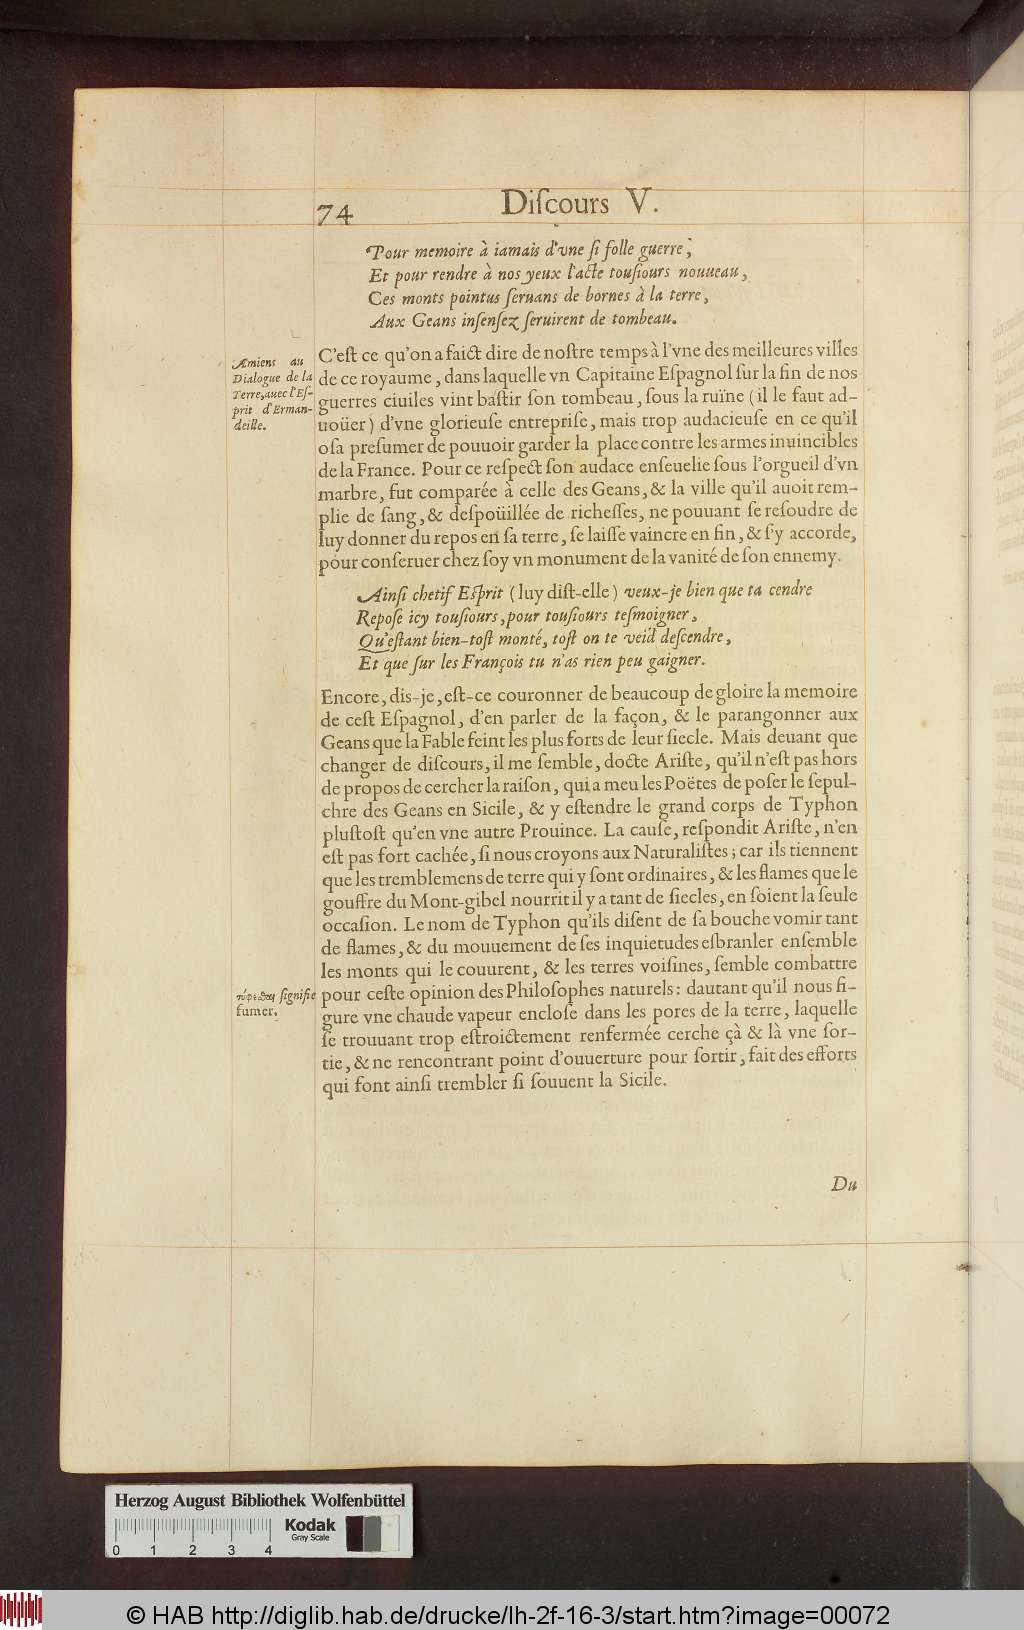 74
Diſcours V.
Pour memoire à iamais d'vne ſi folle guerre,
Et pour rendre à nos yeux l'acte touſiours nouueau,
Ces monts pointus ſeruans de bornes à la terre,
Aux Geans inſenſez ſeruirent de tombeau.
Amiens au
Dialogue de la
Terre, auec l'Eſ-
prit d'Erman-
deille.
C'eſt ce qu'on a faict dire de noſtre temps à l'vne des meilleures villes
de ce royaume, dans laquelle vn Capitaine Eſpagnol ſur la fin de nos
guerres ciuiles vint baſtir ſon tombeau, ſous la ruïne (il le faut ad-
uoüer) d'vne glorieuſe entrepriſe, mais trop audacieuſe en ce qu'il
oſa preſumer de pouuoir garder la place contre les armes inuincibles
de la France. Pour ce reſpect ſon audace enſeuelie ſous l'orgueil d'vn
marbre, fut comparée à celle des Geans, & la ville qu'il auoit rem-
plie de ſang, & deſpoüillée de richeſſes, ne pouuant ſe reſoudre de
luy donner du repos en ſa terre, ſe laiſſe vaincre en fin, & ſ'y accorde,
pour conſeruer chez ſoy vn monument de la vanité de ſon ennemy.
Ainſi chetif Eſprit (luy diſt-elle) veux-je bien que ta cendre
Repoſe icy touſiours, pour touſiours teſmoigner,
Qu'eſtant bien-toſt monté, toſt on te veid deſcendre,
Et que ſur les François tu n'as rien peu gaigner.
Encore, dis-je, eſt-ce couronner de beaucoup de gloire la memoire
de ceſt Eſpagnol, d'en parler de la façon, & le parangonner aux
Geans que la Fable feint les plus forts de leur ſiecle. Mais deuant que
changer de diſcours, il me ſemble, docte Ariſte, qu'il n'eſt pas hors
de propos de cercher la raiſon, qui a meu les Poëtes de poſer le ſepul-
chre des Geans en Sicile, & y eſtendre le grand corps de Typhon
pluſtoſt qu'en vne autre Prouince. La cauſe, reſpondit Ariſte, n'en
eſt pas fort cachée, ſi nous croyons aux Naturaliſtes; car ils tiennent
que les tremblemens de terre qui y ſont ordinaires, & les flames que le
gouffre du Mont-gibel nourrit il y a tant de ſiecles, en ſoient la ſeule
occaſion. Le nom de Typhon qu'ils diſent de ſa bouche vomir tant
de flames, & du mouuement de ſes inquietudes eſbranler enſemble
les monts qui le couurent, & les terres voiſines, ſemble combattre
ſignifie
fumer.
pour ceſte opinion des Philoſophes naturels: dautant qu'il nous fi-
gure vne chaude vapeur encloſe dans les pores de la terre, laquelle
ſe trouuant trop eſtroictement renfermée cerche çà & là vne ſor-
tie, & ne rencontrant point d'ouuerture pour ſortir, fait des efforts
qui font ainſi trembler ſi ſouuent la Sicile.
Du
Herzog August Bibliothek Wolfenbüttel
Kodak
Gray Scale
0 1 2 3 4
© HAB http://diglib.hab.de/drucke/lh-2f-16-3/start.htm?image=00072